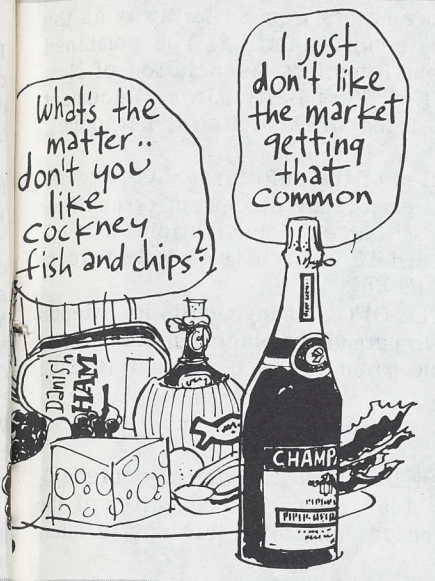 What's the
matter..
don't you
like
cockney
fish and chips?
I just
don't like
the market
getting
that
common
Danish
HAM
CHAMP